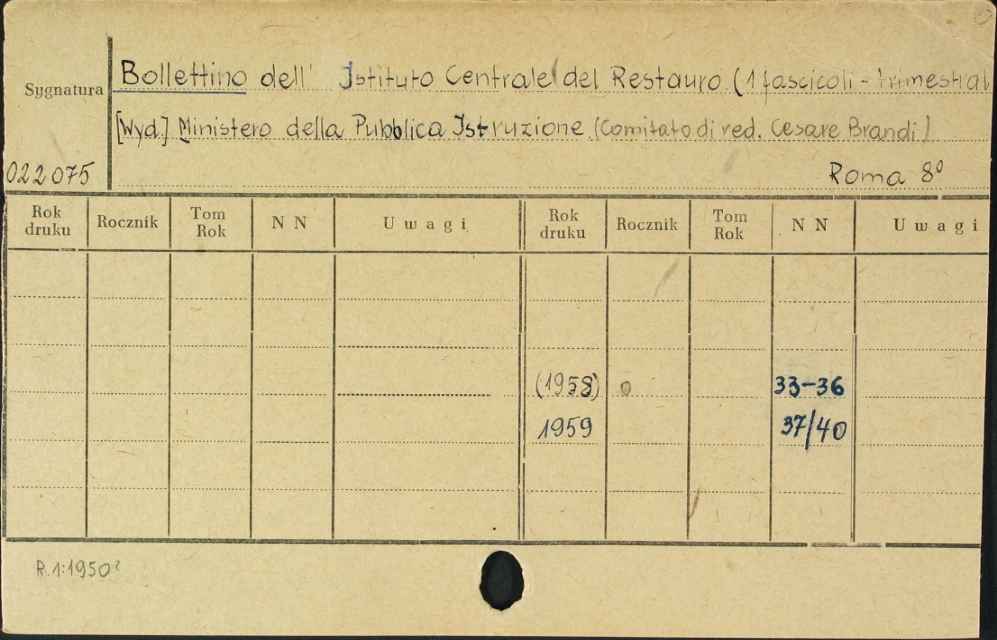 Sygnatura
Bollettino dell' Istituto Centrale del Restauro (1 fascicoli - trimestral
[Wyd.] Ministero della Pubblica Istruzione (Comitato di red. Cesare Brandi)
022075
Roma 8º
Rok druku Rocznik Tom Rok N N Uwagi Rok druku Rocznik Tom Rok N N Uwagi
(1958) 0 33-36
1959 37/40
R.1:1950?